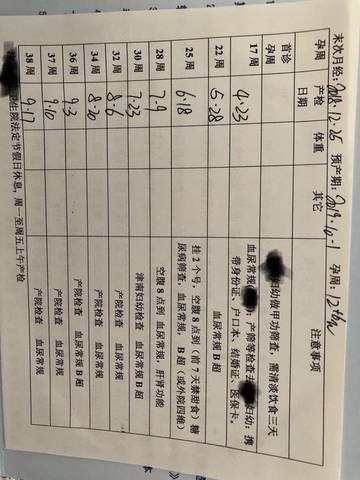 末次月经: 2018.12.25 预产期: 2019.10.1 孕周: 12+6w
孕周 产检日期 体重 其它 注意事项
首诊孕周
妇幼做甲功筛查,需清淡饮食三天
17周 4.23 血尿常规 产筛等检查去 妇幼:携带身份证、户口本、结婚证、医保卡。
22周 5.28 血尿常规B超
25周 6.18 挂2个号,空腹8点到(前7天禁甜食)糖尿病筛查,血尿常规,B超(或外院四维)
28周 7.9 空腹8点到 血尿常规,肝肾功能
30周 7.23 津南妇幼检查 血尿常规B超
32周 8.6 产院检查 血尿常规
34周 8.20 产院检查 血尿常规B超
36周 9.3 产院检查 血尿常规
37周 9.10 产院检查 血尿常规
38周 9.17 产院检查 血尿常规
卫生院法定节假日休息,周一至周五上午产检